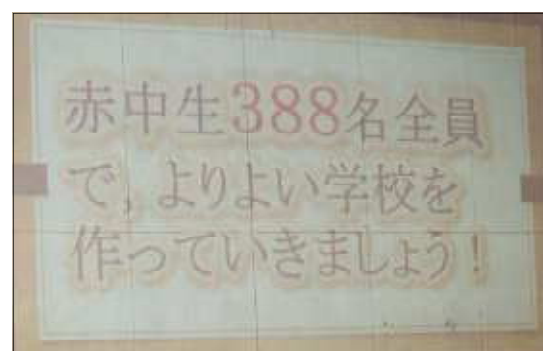 赤中生388名全員
で，よりよい学校を
作っていきましょう！